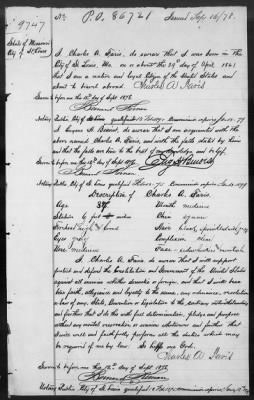 No. P.O. 86721 Issued Sep 16/78.
9747
State of Missouri
City of St. Louis
I, Charles A. Faris, do swear that I was born in the
City of St. Louis, Mo. on or about the 29th day of April 1841
that I am a native and loyal Citizen of the United States and
about to travel abroad. Charles A. Faris
Sworn to before me this 12th day of Sept 1878
Notary Public, City of St. Louis
I, Eugene H. Benoist, do swear that I am acquainted with the
above named Charles A. Faris, and with the facts stated by him
and that the facts are true to the best of my knowledge and belief.
Sworn to before me this 12th day of Sept 1878
Notary Public City of St. Louis
Description of Charles A. Faris.
Age 37
Mouth medium
Stature 6 feet
Chin square
Forehead high & broad
Eyes grey
Complexion clear
Nose medium
Face
I, Charles A. Faris, do swear that I will support
protect and defend the Constitution and Government of the United States
against all enemies whether domestic or foreign, and that I will
bear true faith, allegiance and loyalty to the same, any ordinance, resolution
or law of any State, Convention or Legislature to the contrary notwithstanding
and further that I do this with full determination, pledge and purpose
without any mental reservation or evasion whatsoever and further that
I will well and faithfully perform all the duties which may
be required of me by law. So help me God.
Charles A. Faris
Sworn to before me this 12th day of Sept 1878
Notary Public City of St. Louis